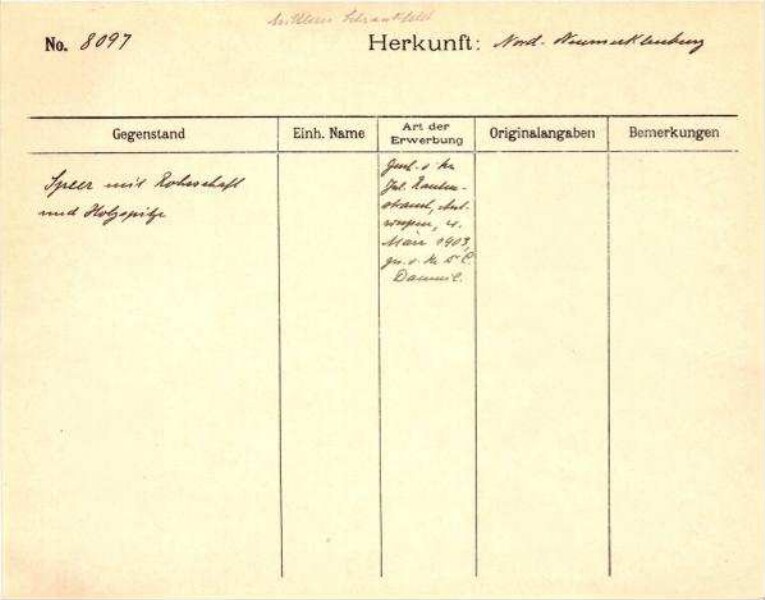 Mittleres Schrankfeld
No. 8097 Herkunft: Nord-Neumecklenburg
Gegenstand Einh. Name Art der Erwerbung Originalangaben Bemerkungen
Speer mit Rohrschaft
und Holzspitze
Gesch. v. Hr.
Jul. Rauten-
strauch, Ant-
werpen, 4.
März 1903,
ges. v. Hr Dr C.